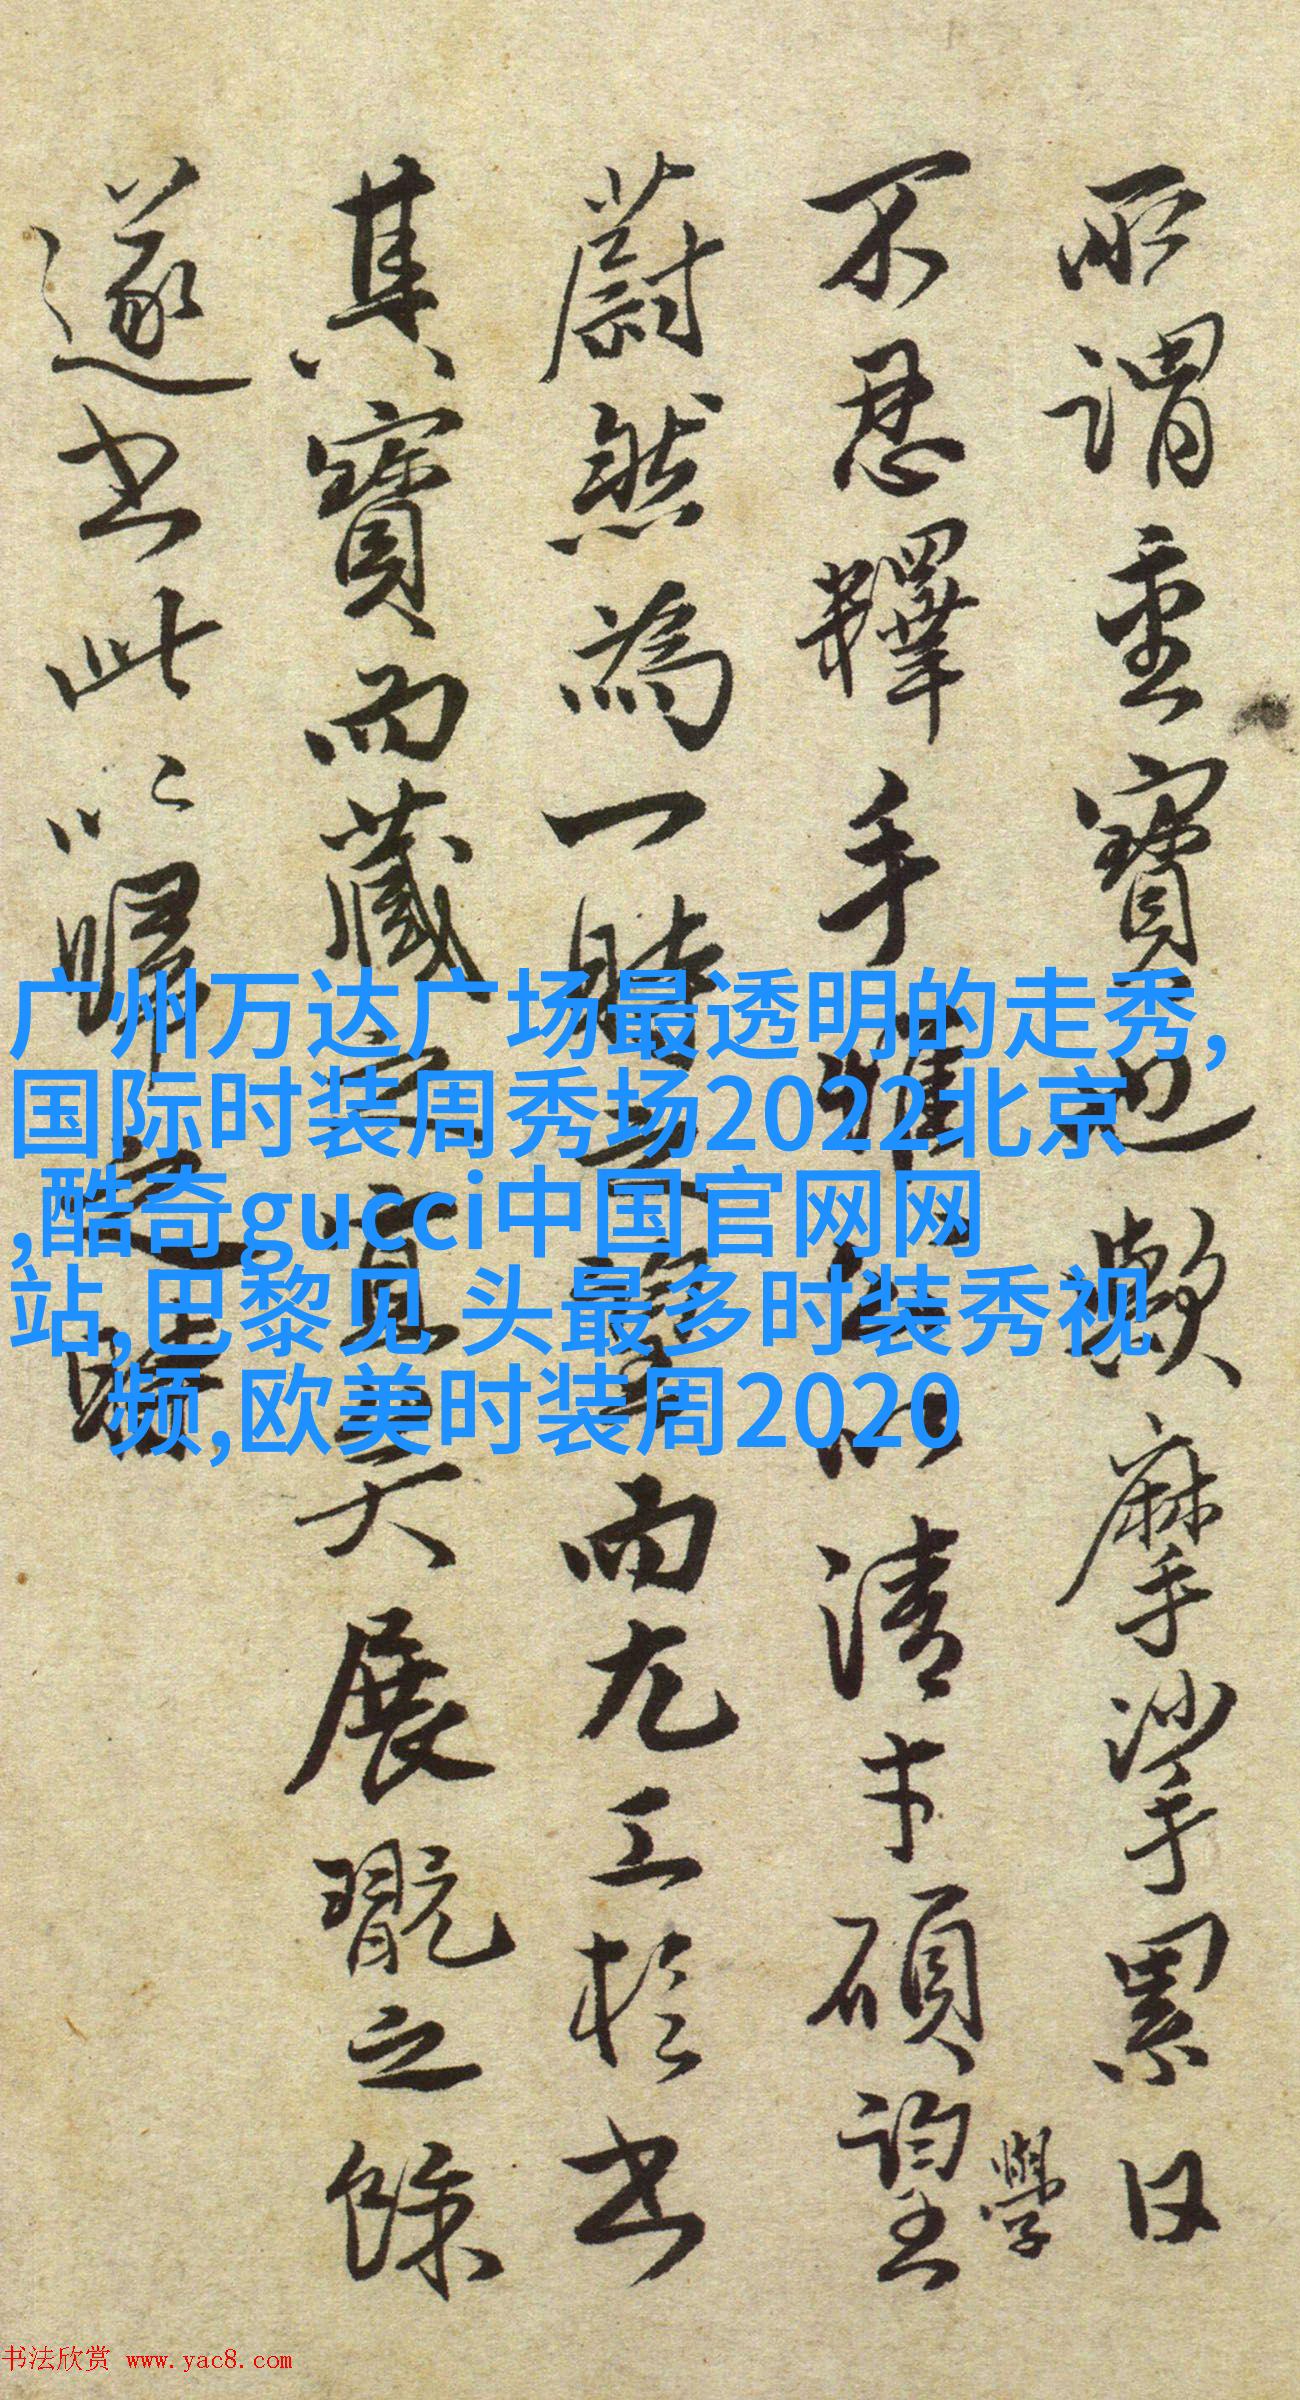 所謂重寶也歟摩挲累日
不忍釋手惟公以清才碩望學
蔚然為一時之望而尤工於書
其寶而藏之宜矣展翫之餘
遂書此以歸之時
广州万达广场最透明的走秀,
国际时装周秀场2022北京
,酷奇gucci中国官网网
站,巴黎见 头最多时装秀视
频,欧美时装周2020
书法欣赏 www.yac8.com